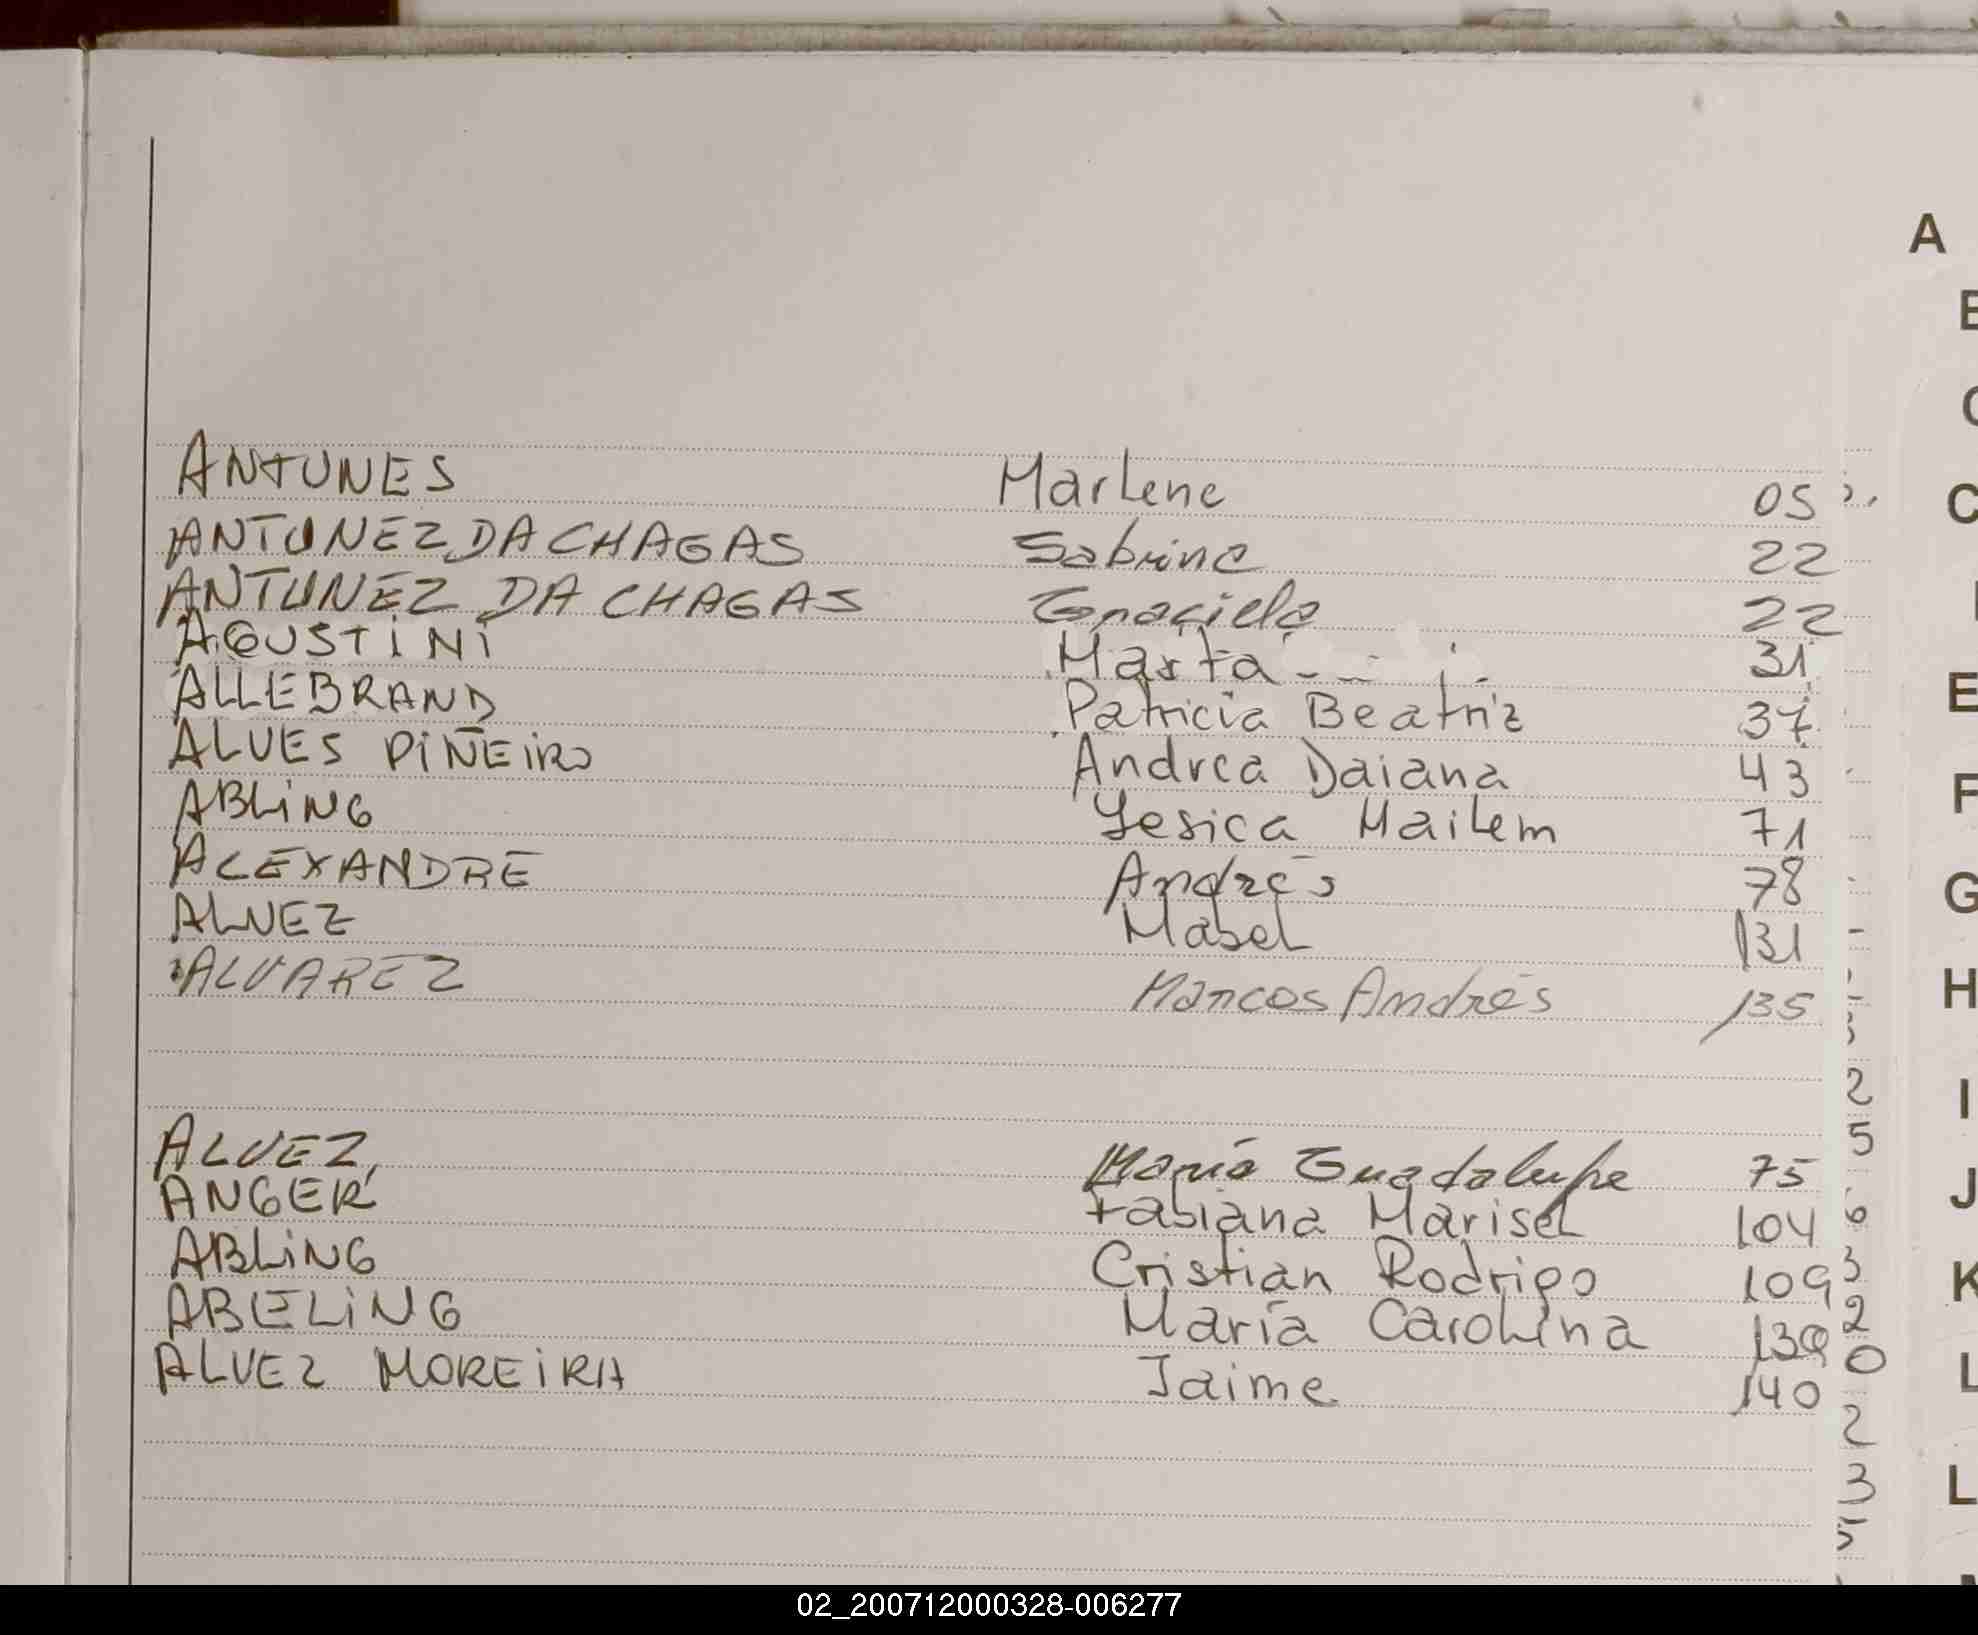 A
ANTUNES Marlene 05
ANTUNEZ DA CHAGAS Sabrina 22
ANTUNEZ DA CHAGAS Graciela 22
AGUSTINI Marta 31
ALLEBRAND Patricia Beatriz 37
ALVES PIÑEIRO Andrea Daiana 43
ABLING Yesica Mailem 71
ALEXANDRE Andrés 78
ALVEZ Mabel 131
ALVAREZ Marcos Andrés 135
ALVEZ, María Guadalupe 75
ANGER Fabiana Marisel 104
ABLING Cristian Rodrigo 109
ABELING María Carolina 139
ALVEZ MOREIRA Jaime 140
C
E
F
G
H
I
J
K
L
02_200712000328-006277